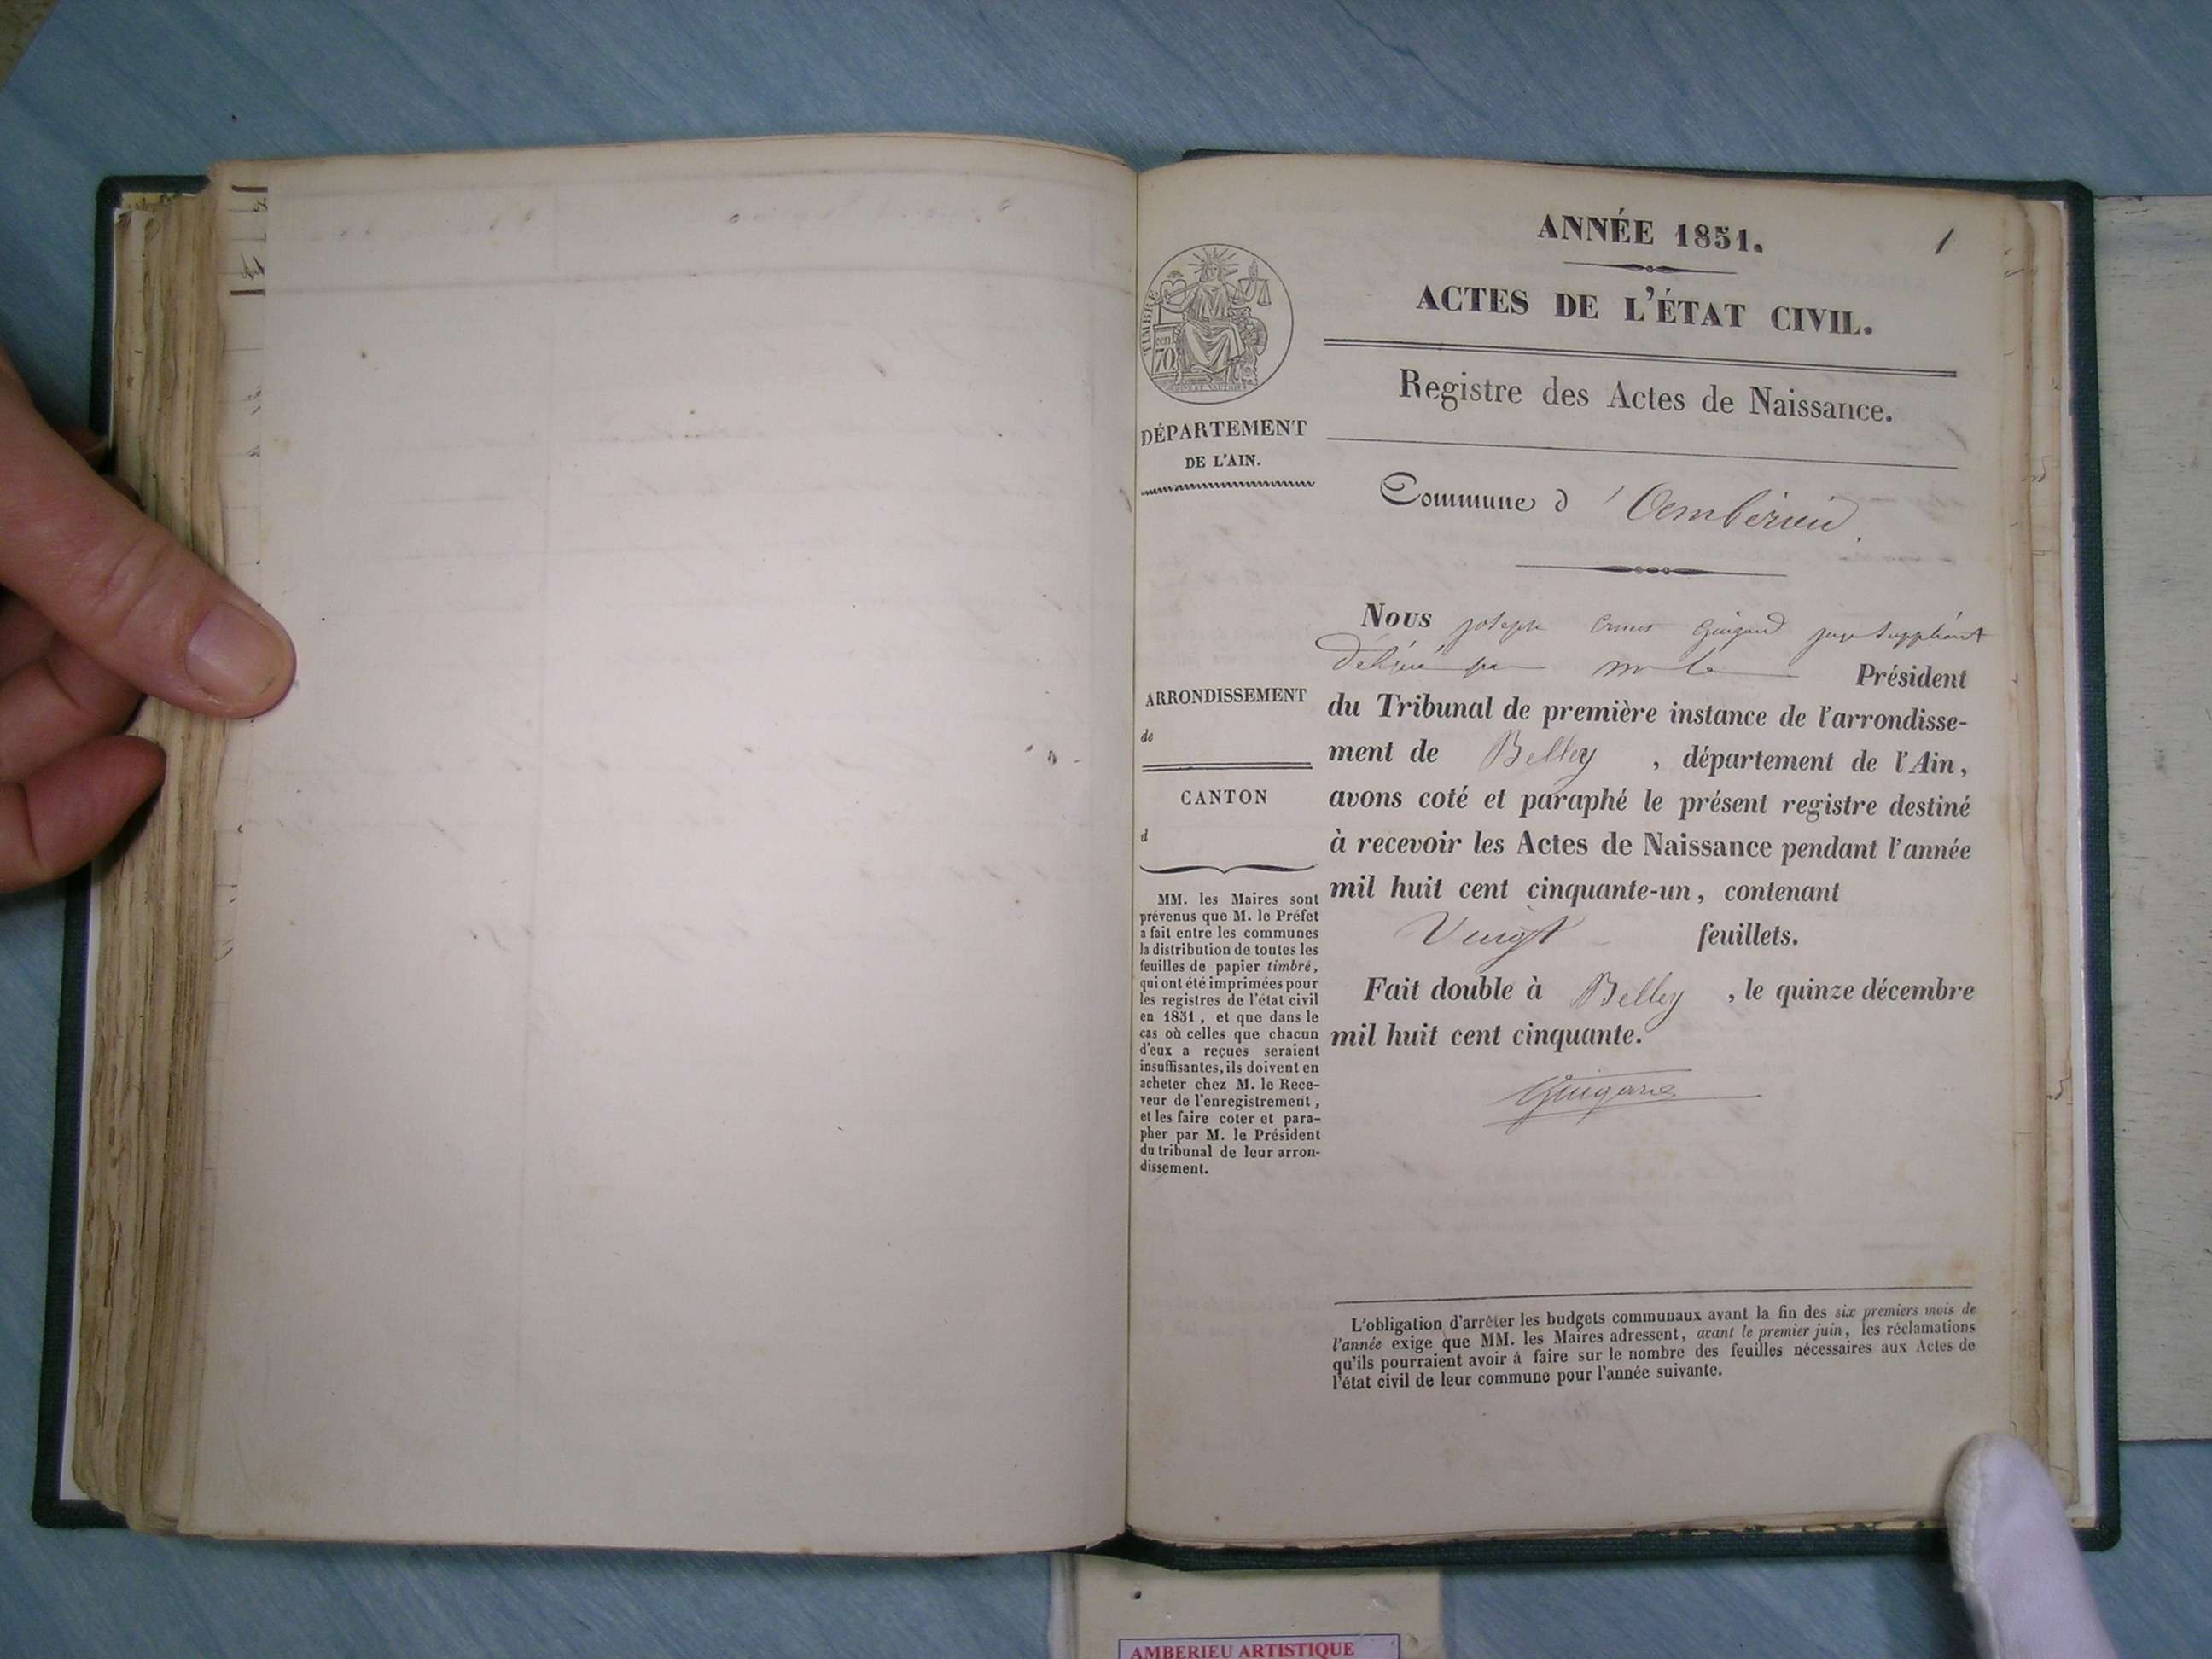 ANNÉE 1851.
1
ACTES DE L'ÉTAT CIVIL.
Registre des Actes de Naissance.
TIMBRE
cent.
70
DÉPARTEMENT
DE L'AIN.
Commune d' Ambérieu
Nous joseph Guigard juge suppléant
délégué par mr le Président
du Tribunal de première instance de l'arrondisse-
ment de Belley, département de l'Ain,
avons coté et paraphé le présent registre destiné
à recevoir les Actes de Naissance pendant l'année
mil huit cent cinquante-un, contenant
Vingt feuillets.
Fait double à Belley, le quinze décembre
mil huit cent cinquante.
ARRONDISSEMENT
de
CANTON
d
MM. les Maires sont
prévenus que M. le Préfet
a fait entre les communes
la distribution de toutes les
feuilles de papier timbré,
qui ont été imprimées pour
les registres de l'état civil
en 1851, et que dans le
cas où celles que chacun
d'eux a reçues seraient
insuffisantes, ils doivent en
acheter chez M. le Rece-
veur de l'enregistrement,
et les faire coter et para-
pher par M. le Président
du tribunal de leur arron-
dissement.
L'obligation d'arrêter les budgets communaux avant la fin des six premiers mois de
l'année exige que MM. les Maires adressent, avant le premier juin, les réclamations
qu'ils pourraient avoir à faire sur le nombre des feuilles nécessaires aux Actes de
l'état civil de leur commune pour l'année suivante.
AMBERIEU ARTISTIQUE